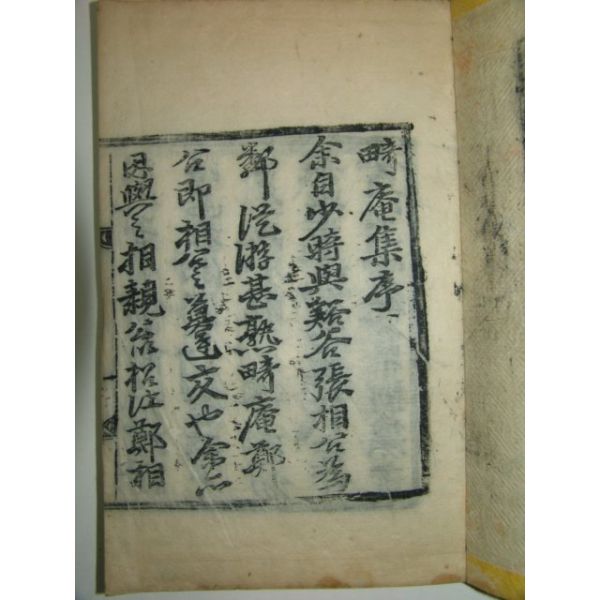 畸庵集序
余自少時與谿谷張相公爲
鄰從游甚熟畸庵鄭
公即相公莫逆交也余亦
因與之相親公從江鄭相